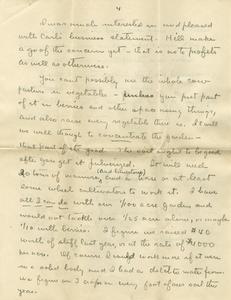 4
I was much interested in and pleased
with Carl's business statement. He'll make
a go of the concern yet - that is as to profits
as well as otherwise.
You can't possibly use the whole cow
pasture in vegetables - unless you put part
of it in berries and other space using things,
and also raise every vegetable there is. It will
be well though to concentrate the garden -
that part of the good. The soil ought to be good
after you get it pulverized. It will need
a load of manure, (and humitone) and a horse or at least
some wheel cultivators to work it. I have
all I can do with our 1/100 acre garden and
would not tackle over 1/25 acre alone, or maybe
1/10 with berries. I figure we raised $40
worth of stuff last year, or at the rate of $1000
per acre. Of course I could work more if it were
in a solid body, and I had no dale to water from.
We figure on 3 crops on every foot of our soil this
year.